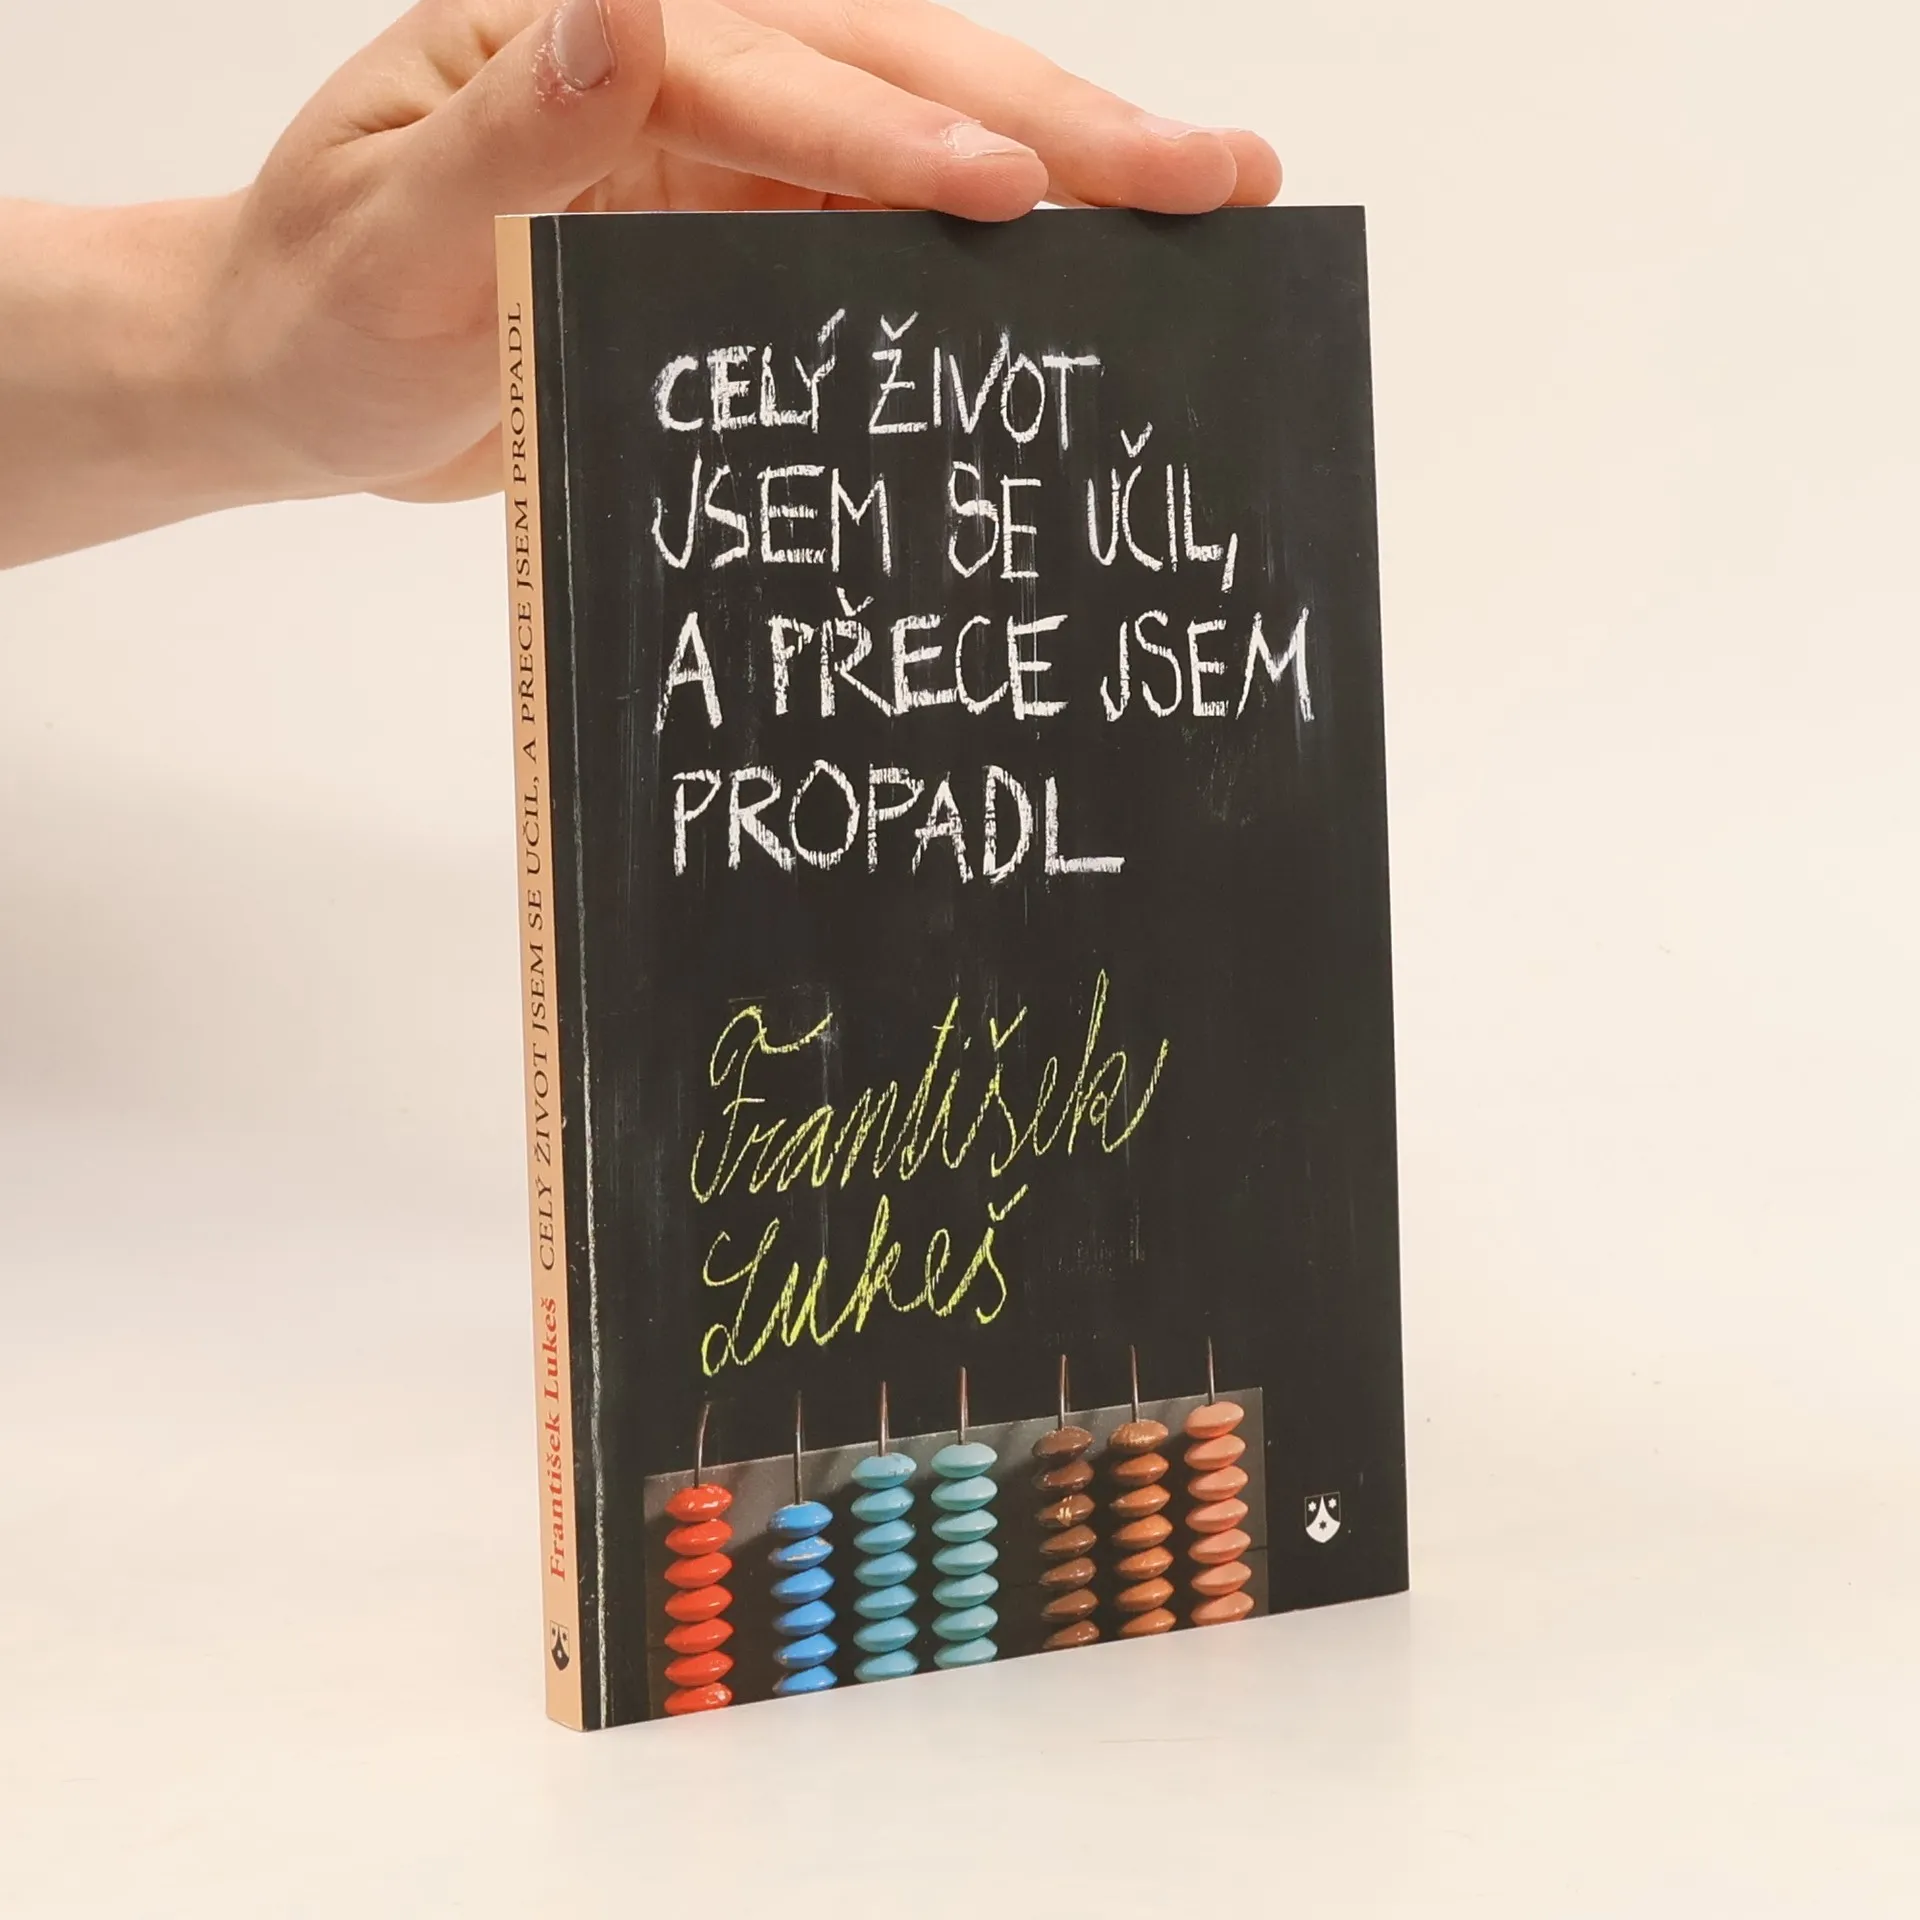 CELÝ ŽIVOT
JSEM SE UČIL,
A PŘECE JSEM
PROPADL
František
Lukeš
František Lukeš CELÝ ŽIVOT JSEM SE UČIL, A PŘECE JSEM PROPADL